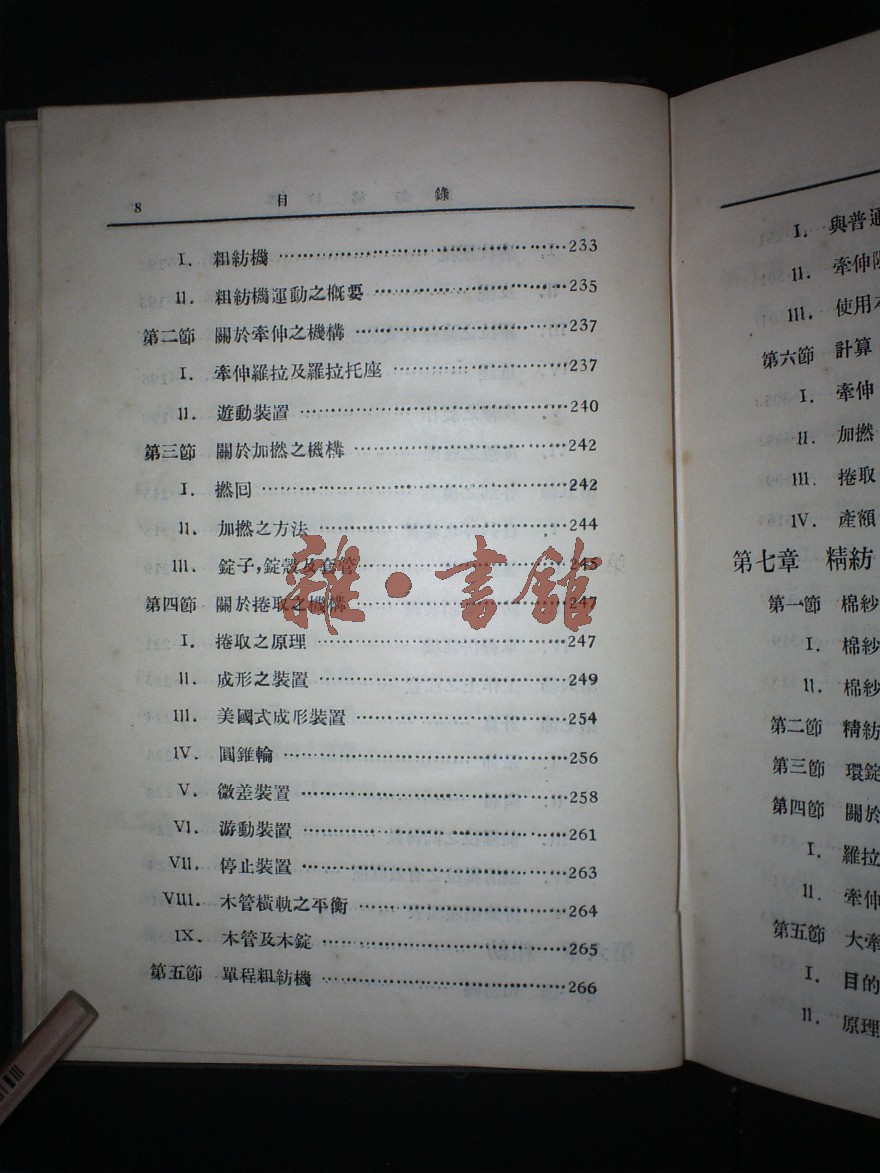 8 目 錄
I. 粗紡機 ………………………………233
II. 粗紡機運動之概要 ………………………235
第二節 關於牽伸之機構 ………………………237
I. 牽伸羅拉及羅拉托座 ……………………237
II. 遊動裝置 ……………………………240
第三節 關於加撚之機構 ………………………242
I. 撚回 ………………………………242
II. 加撚之方法 …………………………244
III. 錠子,錠殼及套管 ………………………245
第四節 關於捲取之機構 ………………………247
I. 捲取之原理 …………………………247
II. 成形之裝置 …………………………249
III. 美國式成形裝置 ………………………254
IV. 圓錐輪 ……………………………256
V. 微差裝置 ……………………………258
VI. 游動裝置 ……………………………261
VII. 停止裝置 ……………………………263
VIII. 木管橫軌之平衡 ………………………264
IX. 木管及木錠 …………………………265
第五節 單程粗紡機 …………………………266
雜·書館
I. 與普通
II. 牽伸
III. 使用
第六節 計算
I. 牽伸
II. 加撚
III. 捲取
IV. 產額
第七章 精紡
第一節 棉紗
I. 棉紗
II. 棉紗
第二節 精紡
第三節 環錠
第四節 關於
I. 羅拉
II. 牽伸
第五節 大牽
I. 目的
II. 原理